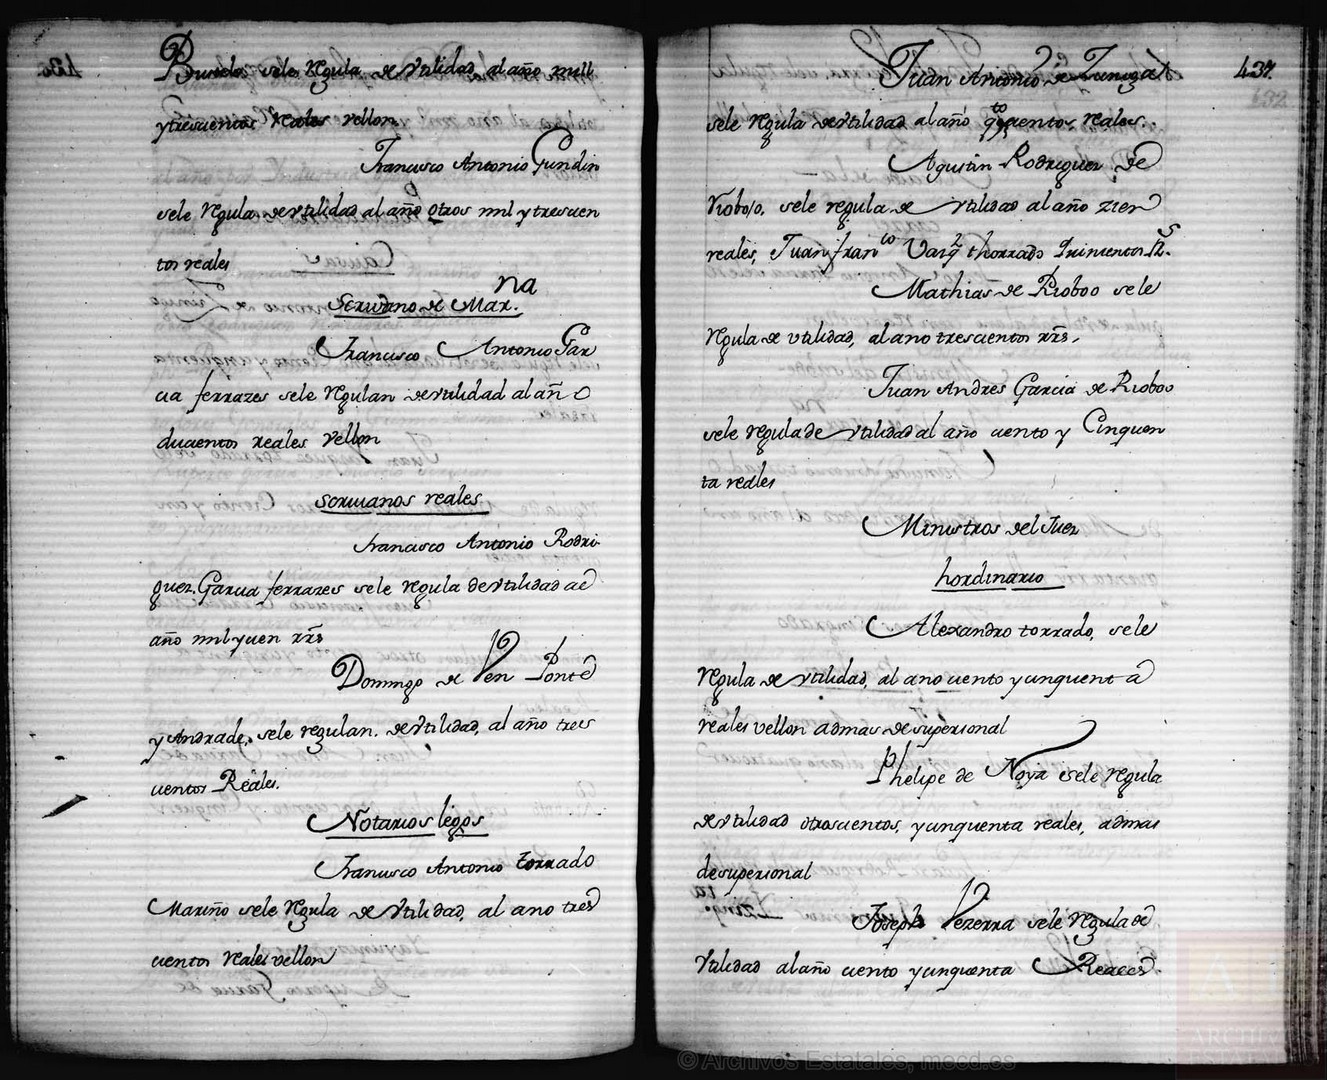 Burelos sele Regula de Vtilidad al año mill
y trescientos Reales vellon
Francisco Antonio Gundin
sele Regula de vtilidad al año otros mil y trescien
tos reales
Scrivano de Mar.na
Francisco Antonio Gar
cia ferrazes sele Regulan de vtilidad al año
ducientos reales vellon
Scrivanos reales
Francisco Antonio Rodri-
guez, Garcia ferrazes sele regula de vtilidad al
año mil y cien rrs
Domingo de Ven Ponte
y Andrade, sele regulan, de vtilidad, al año tres
cientos Reales.
Notarios legos
Francisco Antonio torrado
Mariño sele Regula de Vtilidad, al ano tres
cientos reales vellon
Juan Antonio de Zuniga
437.
632
sele Regula de vtilidad al año q.tocientos reales.
Agustin Rodriguez de
Riobo/o, sele regula de vtilidad al año zien
reales, Juan fran.co Varq.z thorrado Quinientos R.s
Mathias de Rioboo sele
Regula de vtilidad, al ano trescientos rrs.
Juan Andres Garcia de Rioboo
sele regula de vtilidad al año ciento y Cinquen
ta reales
Ministros del Juez
hordinario
Alexandro torrado, sele
Regula de vtilidad, al ano ciento y cinquenta
reales vellon admas de supersonal
Phelipe de Noya sele regula
de vtilidad otroscientos, y cinquenta reales, admas
de supersonal
Joseph Vezerra sele regula de
Vtilidad al año ciento y cinquenta Reales.
© Archivos Estatales, mecd.es
ARCHIVOS
ESTATALES